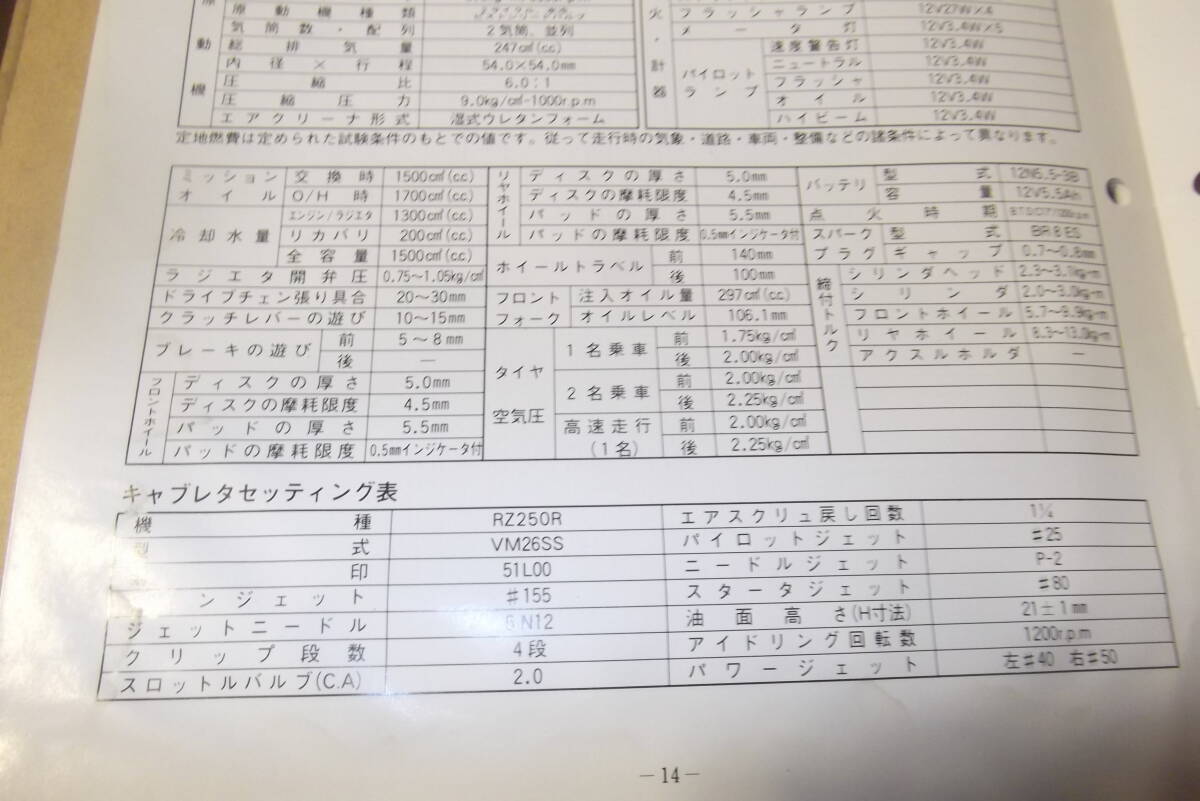 原動機種類
気筒数・配列 2気筒、並列
総排気量 247cm³(c.c.)
内径×行程 54.0×54.0mm
圧縮比 6.0:1
圧縮圧力 9.0kg/cm²-1000r.p.m
エアクリーナ形式 湿式ウレタンフォーム
動
機
火・計器
フラッシャランプ 12V27W×4
メータ灯 12V3.4W×5
パイロットランプ
速度警告灯 12V3.4W
ニュートラル 12V3.4W
フラッシャ 12V3.4W
オイル 12V3.4W
ハイビーム 12V3.4W
定地燃費は定められた試験条件のもとでの値です。従って走行時の気象・道路・車両・整備などの諸条件によって異なります。
ミッションオイル
交換時 1500cm³(c.c.)
O/H時 1700cm³(c.c.)
冷却水量
エンジン/ラジエタ 1300cm³(c.c.)
リカバリ 200cm³(c.c.)
全容量 1500cm³(c.c.)
ラジエタ開弁圧 0.75〜1.05kg/cm²
ドライブチェン張り具合 20〜30mm
クラッチレバーの遊び 10〜15mm
ブレーキの遊び
前 5〜8mm
後 —
フロントホイール
ディスクの厚さ 5.0mm
ディスクの摩耗限度 4.5mm
パッドの厚さ 5.5mm
パッドの摩耗限度 0.5mmインジケータ付
リヤホイール
ディスクの厚さ 5.0mm
ディスクの摩耗限度 4.5mm
パッドの厚さ 5.5mm
パッドの摩耗限度 0.5mmインジケータ付
ホイールトラベル
前 140mm
後 100mm
フロントフォーク
注入オイル量 297cm³(c.c.)
オイルレベル 106.1mm
タイヤ空気圧
1名乗車
前 1.75kg/cm²
後 2.00kg/cm²
2名乗車
前 2.00kg/cm²
後 2.25kg/cm²
高速走行(1名)
前 2.00kg/cm²
後 2.25kg/cm²
バッテリ
型式 12N5.5-3B
容量 12V5.5Ah
点火時期
スパークプラグ
型式 BR8ES
ギャップ 0.7〜0.8mm
締付トルク
シリンダヘッド 2.3〜3.1kg-m
シリンダ 2.0〜3.0kg-m
フロントホイール 5.7〜9.9kg-m
リヤホイール 8.3〜13.0kg-m
アクスルホルダ —
キャブレタセッティング表
機種 RZ250R
式 VM26SS
印 51L00
ンジェット #155
ジェットニードル N12
クリップ段数 4段
スロットルバルブ(C.A) 2.0
エアスクリュ戻し回数 1¼
パイロットジェット #25
ニードルジェット P-2
スタータジェット #80
油面高さ(H寸法) 21±1mm
アイドリング回転数 1200r.p.m
パワージェット 左#40 右#50
—14—